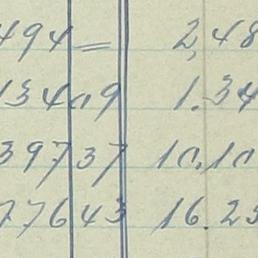 494 = 2,48
134 09 1.34
397 37 10.10
776 43 16.23